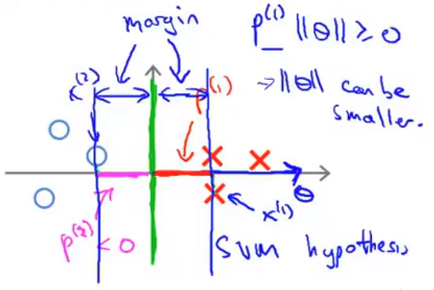 margin
p^(1) ||θ|| ≥ 0
→ ||θ|| can be
smaller.
x^(2)
p^(1)
θ
x^(1)
p^(2) < 0
SVM hypothesis